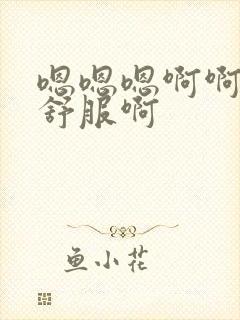 嗯嗯嗯啊啊
舒服啊
鱼小花